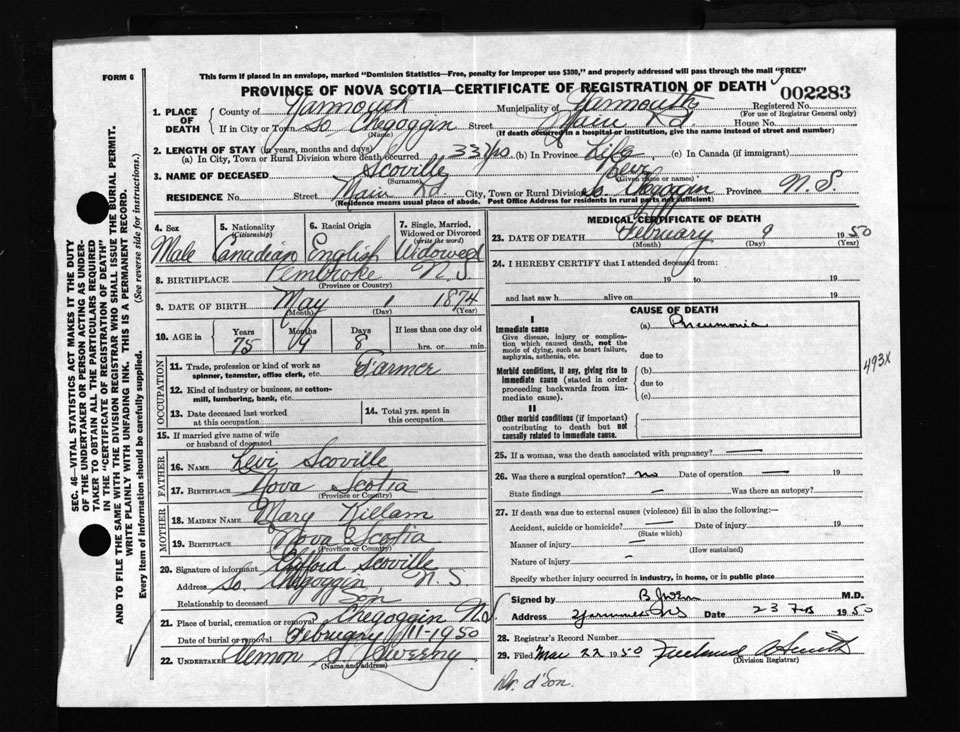 FORM 6
This form if placed in an envelope, marked "Dominion Statistics—Free, penalty for improper use $300," and properly addressed will pass through the mail "FREE"
PROVINCE OF NOVA SCOTIA—CERTIFICATE OF REGISTRATION OF DEATH
002283
1. PLACE OF DEATH
County of Yarmouth Municipality of Yarmouth Registered No.
(For use of Registrar General only)
If in City or Town So. Chegoggin Street Main Rd. House No.
(Name) (If death occurred in a hospital or institution, give the name instead of street and number)
2. LENGTH OF STAY (in years, months and days)
(a) In City, Town or Rural Division where death occurred 33 yrs (b) In Province Life (c) In Canada (if immigrant)
3. NAME OF DECEASED Scoville
(Surname) (Given name or names)
RESIDENCE No. Street Main Rd City, Town or Rural Division So. Chegoggin Province N.S.
(Residence means usual place of abode. Post Office Address for residents in rural parts not sufficient)
4. Sex Male
5. Nationality (Citizenship) Canadian
6. Racial Origin English
7. Single, Married, Widowed or Divorced (write the word) Widowed
8. BIRTHPLACE Pembroke N.S.
(Province or Country)
9. DATE OF BIRTH May 1 1874
(Month) (Day) (Year)
10. AGE in Years 75 Months 9 Days 8 If less than one day old hrs. or min.
OCCUPATION
11. Trade, profession or kind of work as spinner, teamster, office clerk, etc. Farmer
12. Kind of industry or business, as cotton-mill, lumbering, bank, etc.
13. Date deceased last worked at this occupation
14. Total yrs. spent in this occupation
15. If married give name of wife or husband of deceased
FATHER
16. NAME Levi Scoville
17. BIRTHPLACE Nova Scotia
(Province or Country)
MOTHER
18. MAIDEN NAME Mary Killam
19. BIRTHPLACE Nova Scotia
(Province or Country)
20. Signature of informant Clifford Scoville
Address So. Chegoggin N.S
Relationship to deceased Son
21. Place of burial, cremation or removal Chegoggin N.S
Date of burial or removal February 11-1950
22. UNDERTAKER Vernon S. Sweeny
(Name and address)
MEDICAL CERTIFICATE OF DEATH
23. DATE OF DEATH February 9 1950
(Month) (Day) (Year)
24. I HEREBY CERTIFY that I attended deceased from:
19 to 19
and last saw h alive on 19
CAUSE OF DEATH
I
Immediate cause
Give disease, injury or complication which caused death, not the mode of dying, such as heart failure, asphyxia, asthenia, etc.
(a) Pneumonia
due to
Morbid conditions, if any, giving rise to immediate cause (stated in order proceeding backwards from immediate cause).
(b)
due to
(c)
493X
II
Other morbid conditions (if important) contributing to death but not causally related to immediate cause.
25. If a woman, was the death associated with pregnancy? —
26. Was there a surgical operation? no Date of operation — 19
State findings — Was there an autopsy?
27. If death was due to external causes (violence) fill in also the following:—
Accident, suicide or homicide? — Date of injury 19
(State which)
Manner of injury —
(How sustained)
Nature of injury -
Specify whether injury occurred in industry, in home, or in public place
Signed by M.D.
Address Date 23 Feb 1950
28. Registrar's Record Number
29. Filed Mar 22 1950
(Division Registrar)
SEC. 46—VITAL STATISTICS ACT MAKES IT THE DUTY
OF THE UNDERTAKER OR PERSON ACTING AS UNDERTAKER
TO OBTAIN ALL THE PARTICULARS REQUIRED
IN THE "CERTIFICATE OF REGISTRATION OF DEATH"
AND TO FILE THE SAME WITH THE DIVISION REGISTRAR WHO SHALL ISSUE THE BURIAL PERMIT.
WRITE PLAINLY WITH UNFADING INK. THIS IS A PERMANENT RECORD.
Every item of information should be carefully supplied. (See reverse side for instructions.)